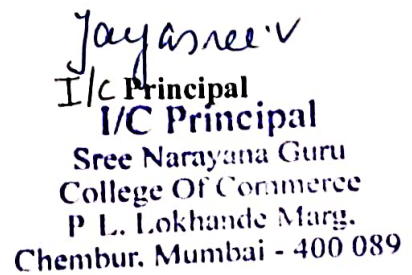 Jayasree.V
I/C Principal
I/C Principal
Sree Narayana Guru
College Of Commerce
P L. Lokhande Marg.
Chembur. Mumbai - 400 089